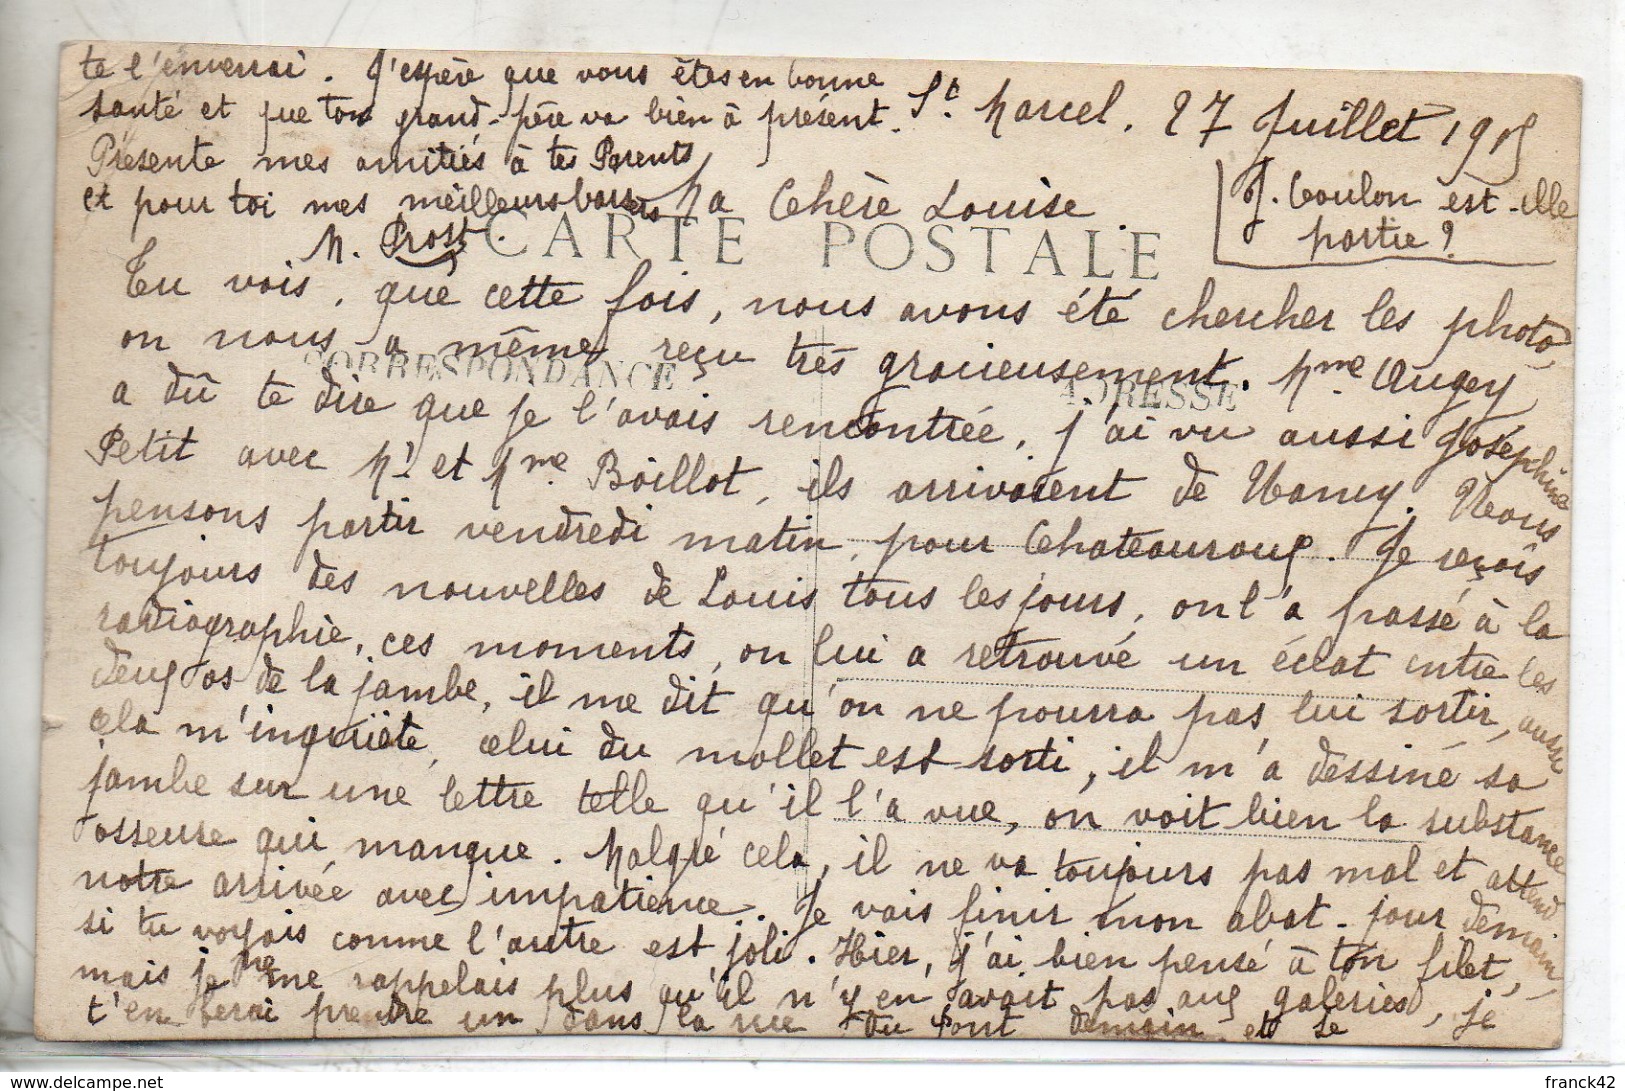 St Marcel. 27 Juillet 1915
J. Coulon est-elle
partie?
Ma Chère Louise
CARTE POSTALE
CORRESPONDANCE
ADRESSE
Tu vois, que cette fois, nous avons été chercher les photo,
on nous a même reçu très gracieusement. Mme Augey
a dû te dire que je l'avais rencontrée, j'ai vu aussi Joséphine
Petit avec Mr et Mme Boillot, ils arrivaient de Nancy. Nous
pensons partir vendredi matin, pour Chateauroux. Je reçois
toujours des nouvelles de Louis tous les jours, on l'a passé à la
radiographie, ces moments, on lui a retrouvé un éclat entre les
deux os de la jambe, il me dit qu'on ne pourra pas lui sortir, aussi
cela m'inquiète, celui du mollet est sorti, il m'a dessiné sa
jambe sur une lettre telle qu'il l'a vue, on voit bien la substance
osseuse qui manque. Malgré cela, il ne va toujours pas mal et attend
notre arrivée avec impatience. Je vais finir mon abat-jour demain,
si tu voyais comme l'autre est joli. Hier, j'ai bien pensé à ton filet,
mais je ne me rappelais plus qu'il n'y en avait pas aux galeries, je
t'en ferai prendre un dans la rue du Pont demain et te
te l'enverrai. J'espère que vous êtes en bonne
santé et que ton grand-père va bien à présent.
Présente mes amitiés à tes Parents
et pour toi mes meilleurs baisers
M. Prost
delcampe.net
franck42